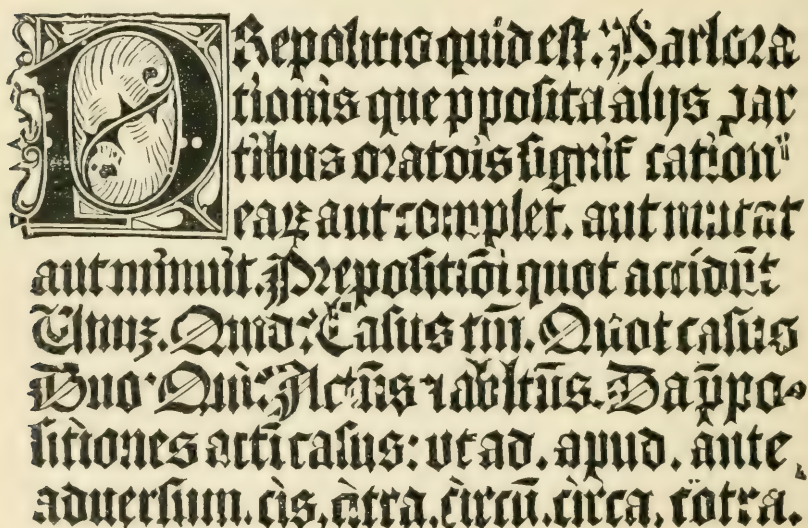 PRepositio quid est. Pars ora
tionis que ꝓposita alijs par
tibus oratiōis signifícation
eaꝝ aut complet. aut mutat
aut minuit. Prepositiōi quot accidūt
Unuꝫ. Quid? Casus tm̄. Quot casus
Duo. Qui? Actūs ⁊ ablt̄us. Da p̄po-
sitiones acti casus: vt ad. apud. ante
aduersum. cis. citra. circū. circa. cōtra.